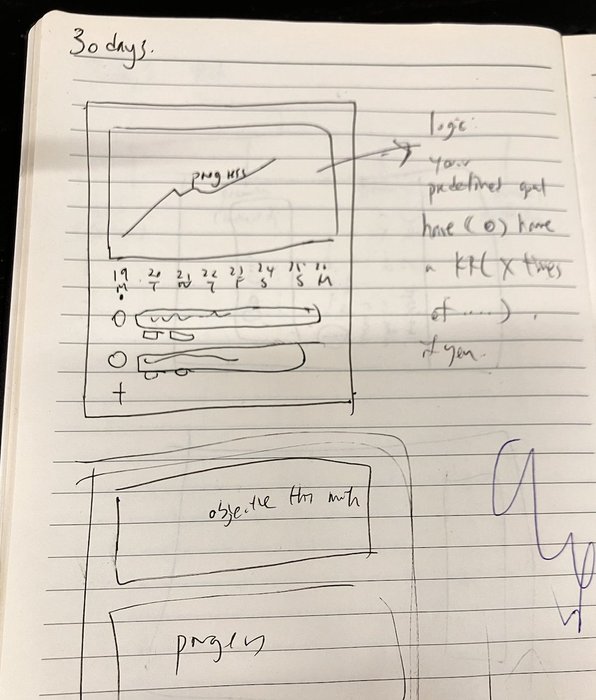 30 days.
progress
logic:
your
predefined goal
have (O) have
a KR ( X times
of ......) .
if you.
19 20 21 22 23 24 25 26
M T W T F S S M
+
objective this month
progress